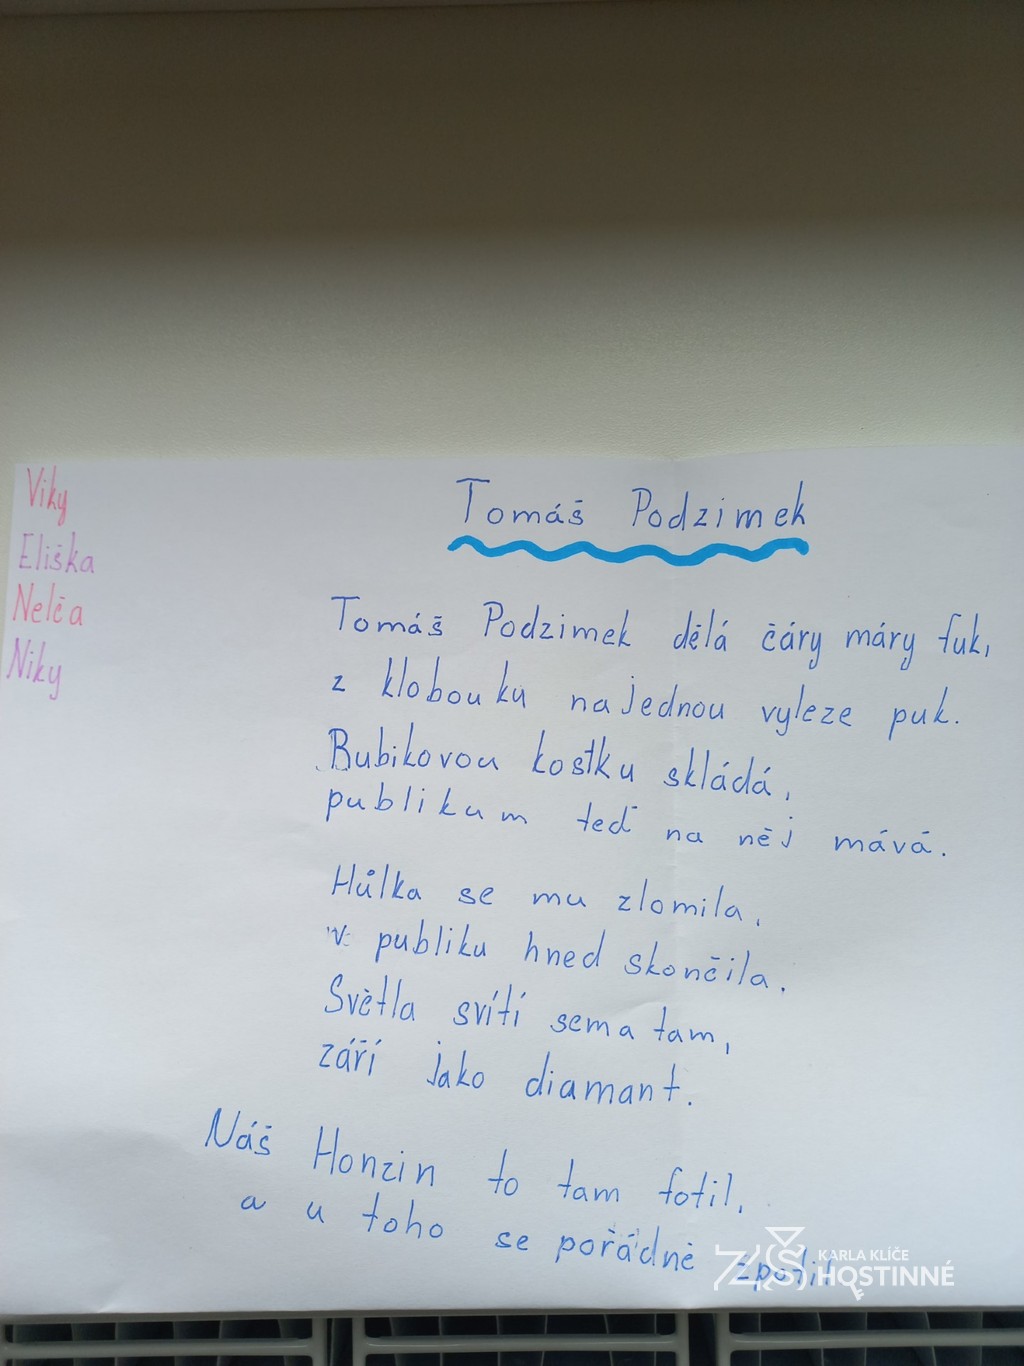 Viky
Eliška
Nelča
Niky
Tomáš Podzimek
Tomáš Podzimek dělá čáry máry fuk,
z klobouku najednou vyleze puk.
Bubikovou kostku skládá,
publikum teď na něj mává.
Hůlka se mu zlomila,
v publiku hned skončila.
Světla svítí sem a tam,
září jako diamant.
Náš Honzin to tam fotil,
a u toho se pořádně zpotil
ZŠ KARLA KLÍČE
HOSTINNÉ